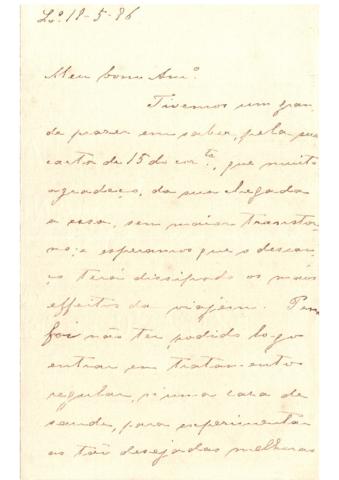 Lxª. 18-5-86
Meu bom Amº.
Tivemos um gran
de prazer em saber, pela sua
carta de 15 do corte., que muito
agradeço, da sua chegada
a essa, sem maior transtor
no; e esperamos que o descan
ço terá dissipado os maos
effeitos da viagem. Pena
foi não ter podido logo
entrar em tratamento
regular, n'uma casa de
saude, para experimentar
as tão desejadas melhoras